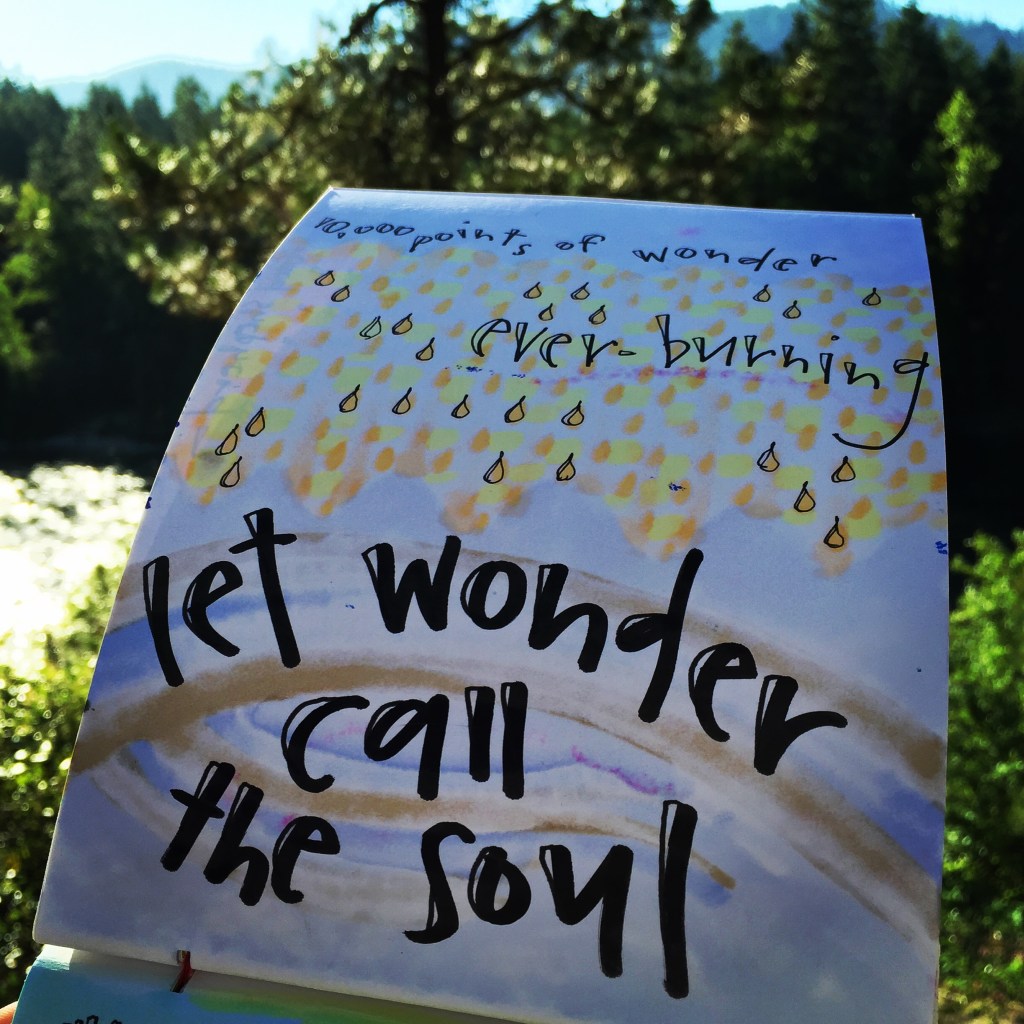 10,000 points of wonder
ever-burning
let wonder
call
the soul